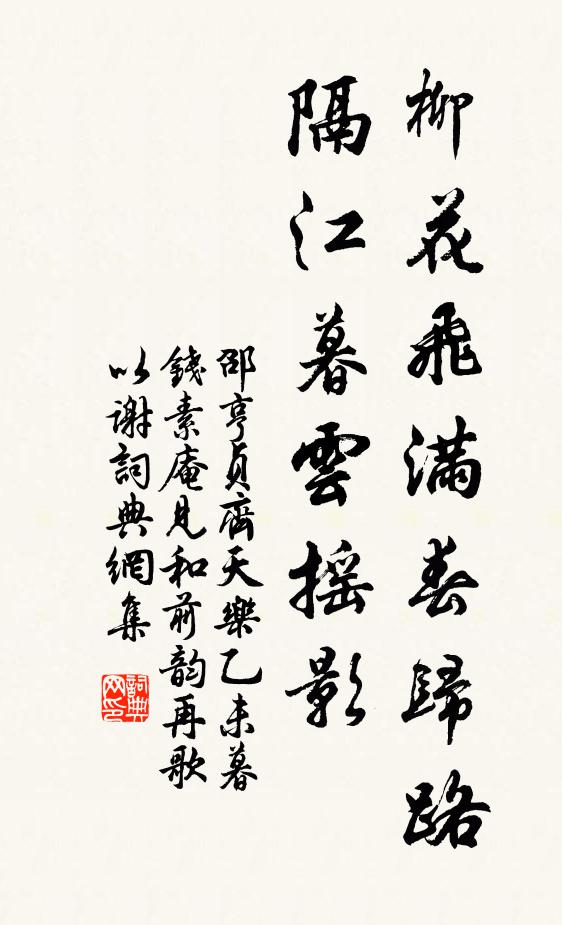 柳花飛滿春歸路
隔江暮雲摇影
邵亨貞齊天樂乙未暮
錢素庵見和前韵再歌
以謝詞典網集
詞典网印